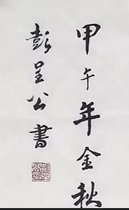 甲午年金秋
彭呈公書